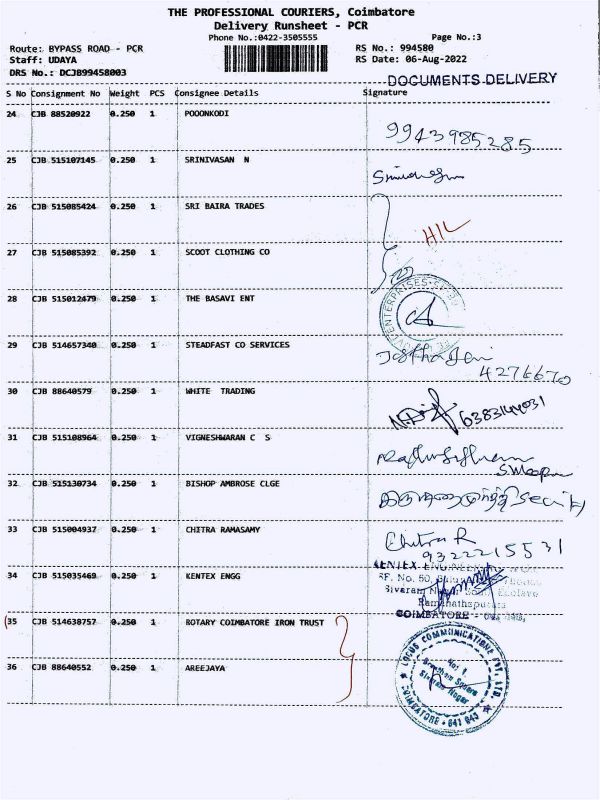 THE PROFESSIONAL COURIERS, Coimbatore
Delivery Runsheet - PCR
Phone No.:0422-3505555 Page No.:3
Route: BYPASS ROAD - PCR RS No.: 994580
Staff: UDAYA RS Date: 06-Aug-2022
DRS No.: DCJB99458003
DOCUMENTS DELIVERY
S No Consignment No Weight PCS Consignee Details Signature
24 CJB 88520922 0.250 1 POOONKODI
9943985285
25 CJB 515107145 0.250 1 SRINIVASAN N
26 CJB 515085424 0.250 1 SRI BAIRA TRADES
H/L
27 CJB 515085392 0.250 1 SCOOT CLOTHING CO
28 CJB 515012479 0.250 1 THE BASAVI ENT
29 CJB 514657340 0.250 1 STEADFAST CO SERVICES
4276670
30 CJB 88640579 0.250 1 WHITE TRADING
6383144031
31 CJB 515108964 0.250 1 VIGNESHWARAN C S
32 CJB 515130734 0.250 1 BISHOP AMBROSE CLGE
33 CJB 515004937 0.250 1 CHITRA RAMASAMY
Chitra R
9322215531
34 CJB 515035469 0.250 1 KENTEX ENGG
Ramanathapuram
COIMBATORE
35 CJB 514638757 0.250 1 ROTARY COIMBATORE IRON TRUST
36 CJB 88640552 0.250 1 AREEJAYA
LOCUS COMMUNICATIONS PVT. LTD.
No: 1,
Gowtham Square
Sivaram Nagar
COIMBATORE - 641 045